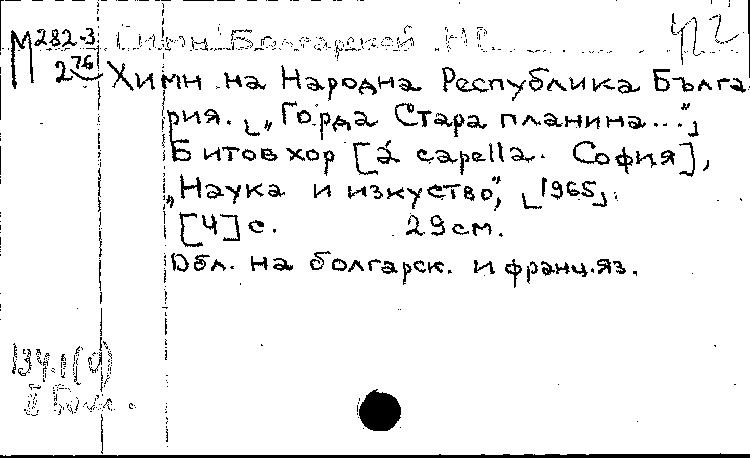 М 282-3 Гимн Болгарской НР
2 76 Химн на Народна Република Бълга
рия. [„Горда Стара планина..."]
Битов хор [á capella. София],
„Наука и изкуство", [1965].
[4] с. 29 см.
Обл. на болгарск. и франц. яз.
134.1(0)
II Болг.